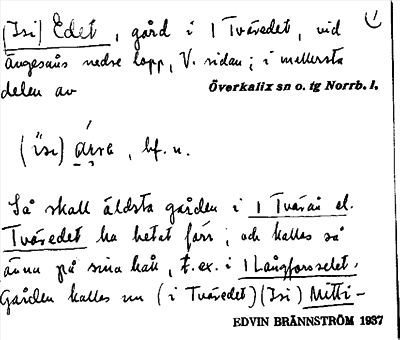 (Isi) Edet, gård i 1 Tväredet, vid
Ängesåns nedre lopp, V. sidan; i mellersta
delen av Överkalix sn o. tg Norrb. l.
(isi) árra, bf. n.
Så skall äldsta gården i 1 Tvärån el.
Tväredet ha hetat förr; och kallas så
ännu på sina håll, t.ex. i 1 Långforsselet.
Gården kallas nu (i Tväredet) (Isi) Mitti-
EDVIN BRÄNNSTRÖM 1937